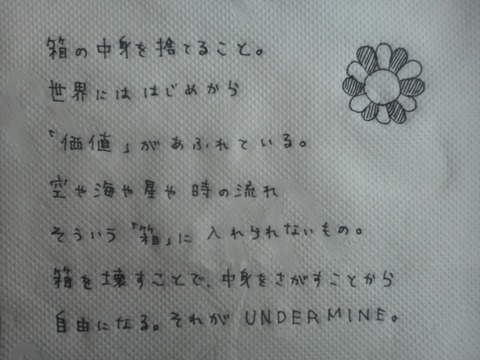 箱の中身を捨てること。
世界にははじめから
「価値」があふれている。
空や海や星や時の流れ
そういう「箱」に入れられないもの。
箱を壊すことで、中身をさがすことから
自由になる。それがUNDERMINE。